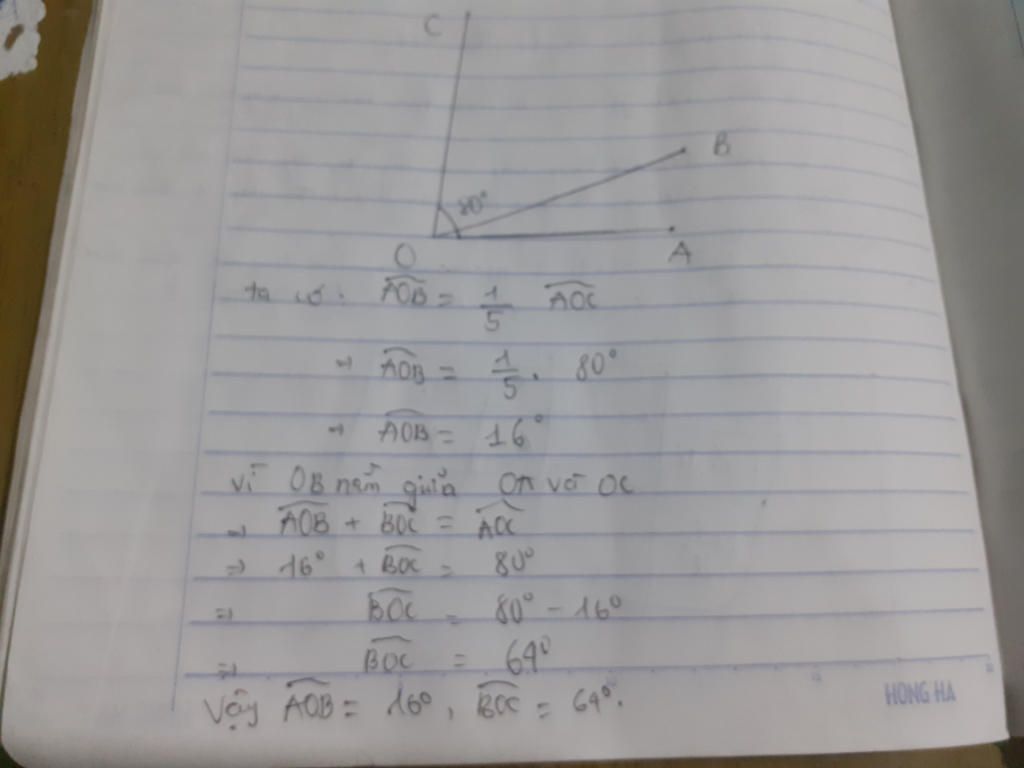 C
B
80°
O
A
ta có: AOB = 1/5 AOC
⇒ AOB = 1/5 . 80°
⇒ AOB = 16°
vì OB nằm giữa OA và OC
⇒ AOB + BOC = AOC
⇒ 16° + BOC = 80°
⇒ BOC = 80° - 16°
⇒ BOC = 64°
HONG HA
Vậy AOB = 16°, BOC = 64°.